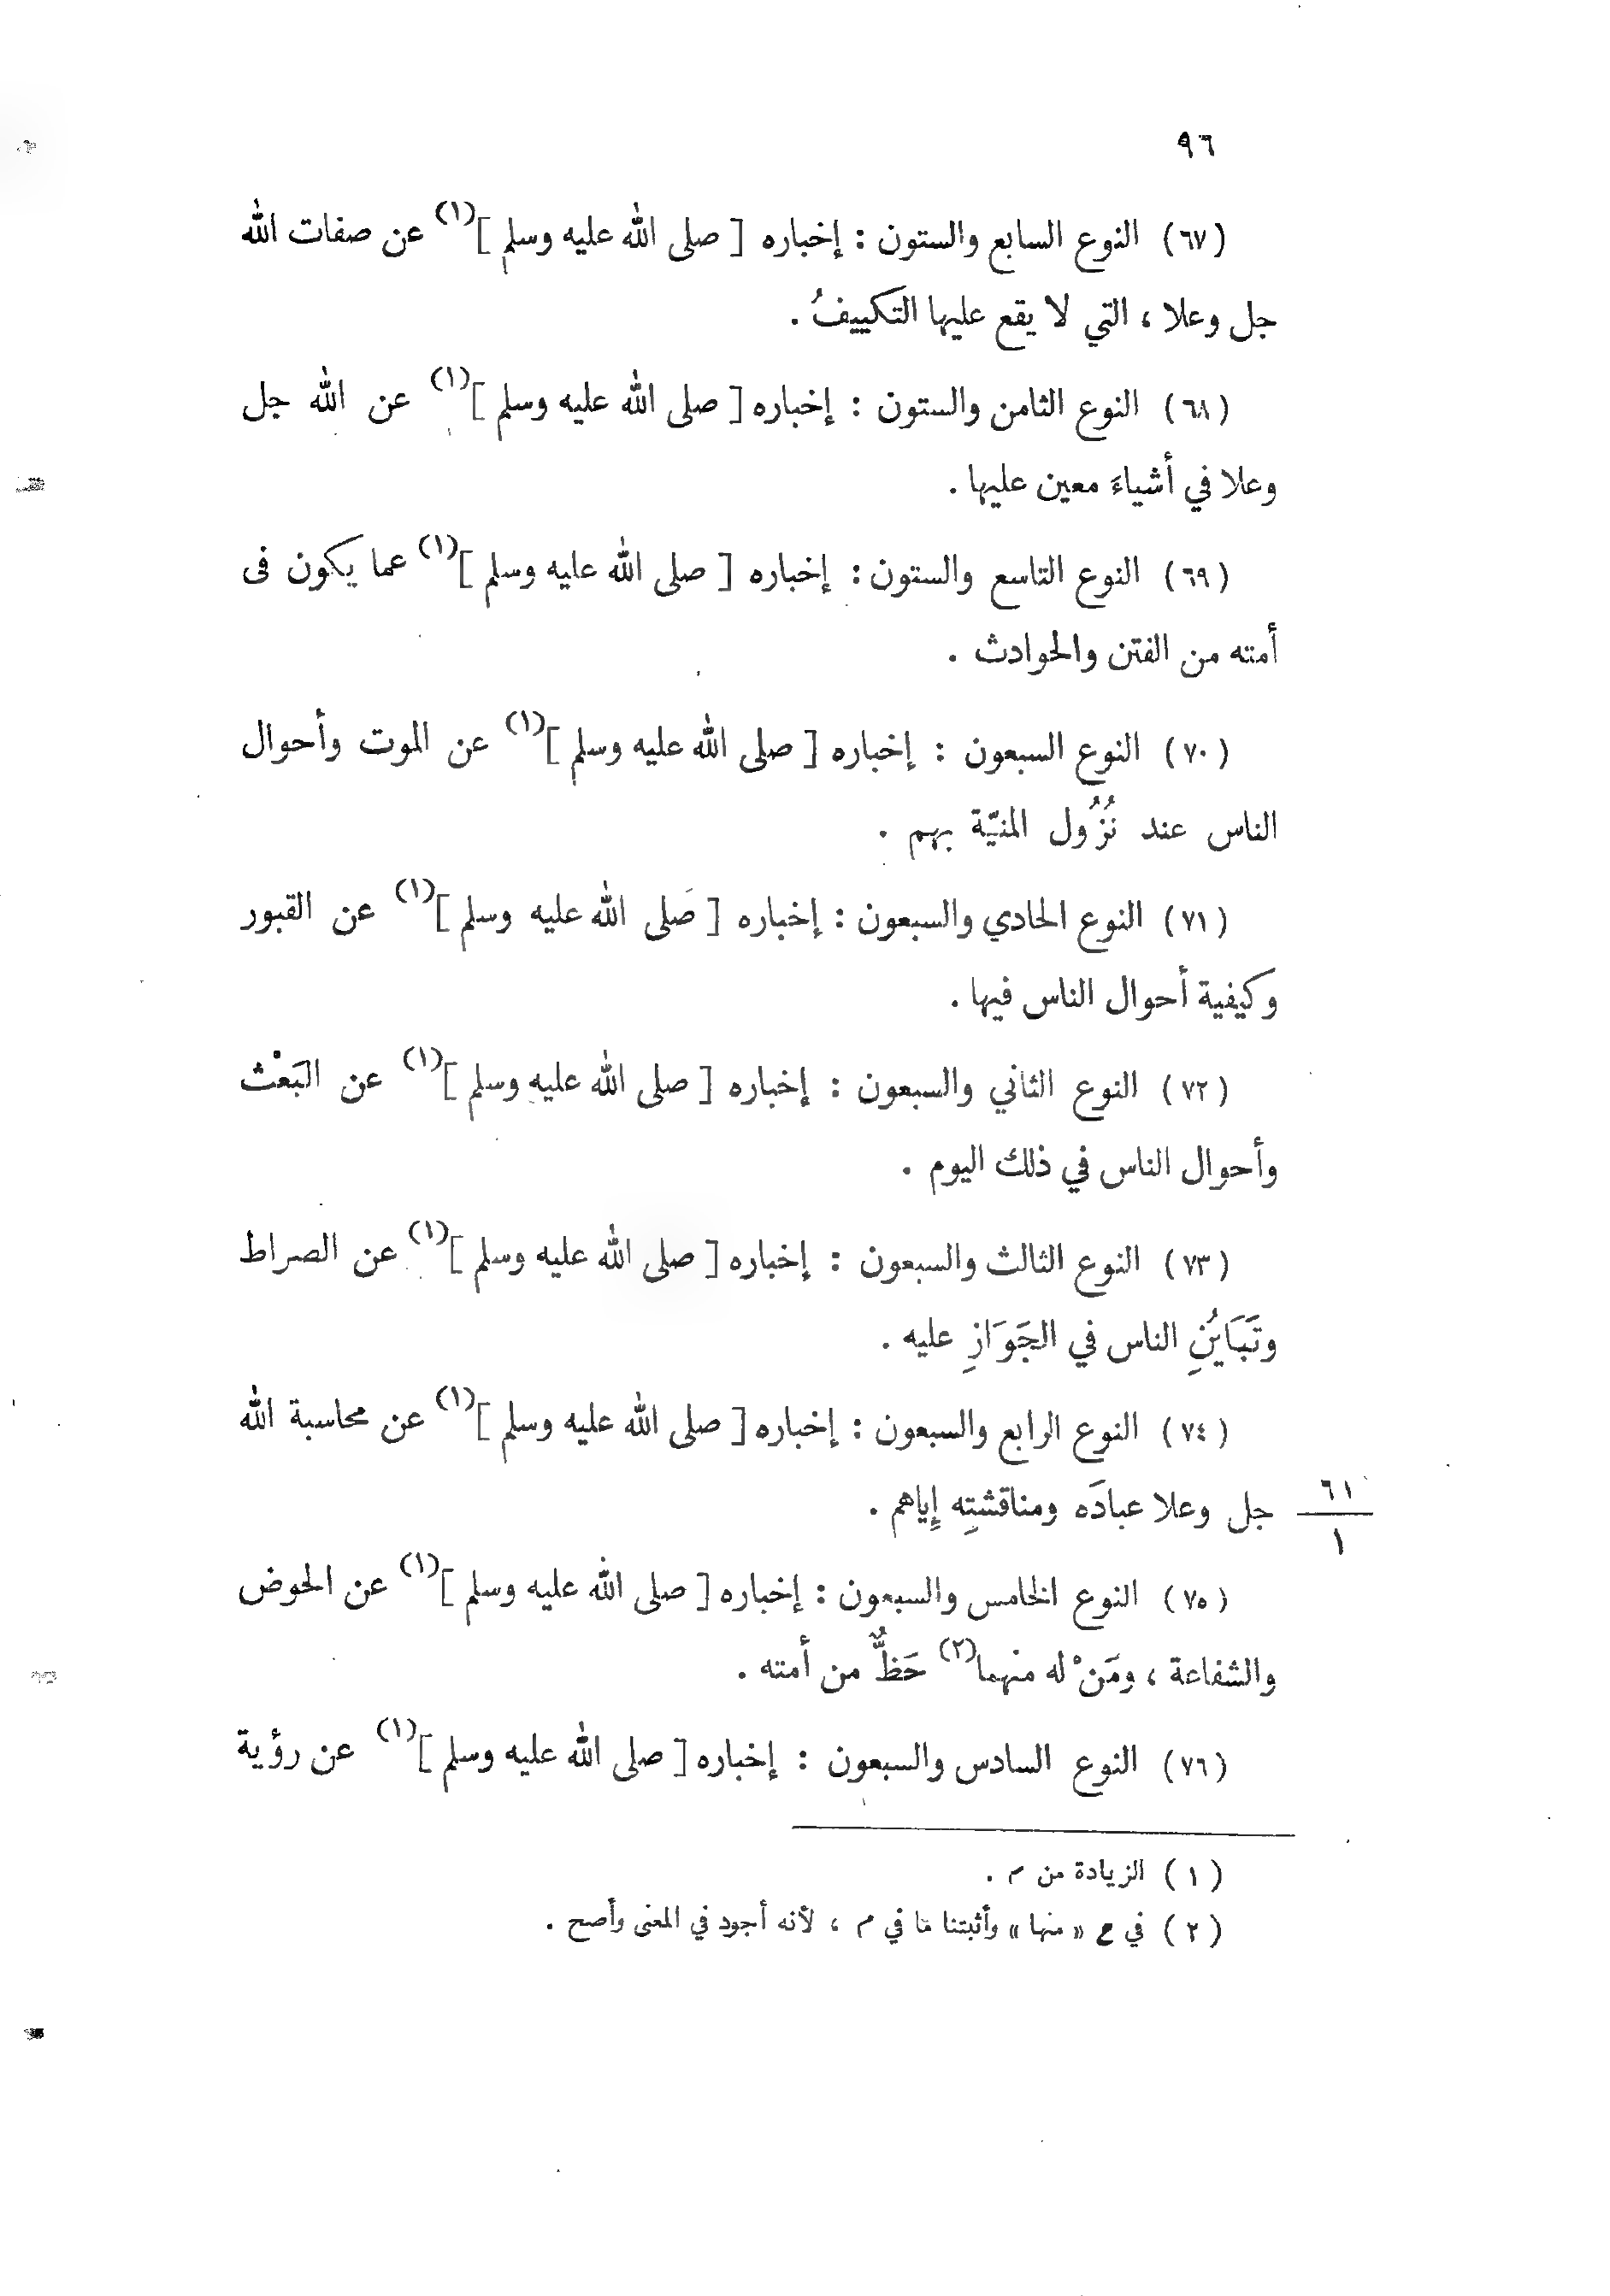 ٩٦
(٦٧) النوع السابع والستون : إخباره [ صلى الله عليه وسلم ](١) عن صفات الله
جل وعلا ، التي لا يقع عليها التكييفُ .
(٦٨) النوع الثامن والستون : إخباره [ صلى الله عليه وسلم ](١) عن الله جل
وعلا في أشياءَ معين عليها .
(٦٩) النوع التاسع والستون : إخباره [ صلى الله عليه وسلم ](١) عما يكون فى
أمته من الفتن والحوادث .
(٧٠) النوع السبعون : إخباره [ صلى الله عليه وسلم ](١) عن الموت وأحوال
الناس عند نُزُول المنيّة بهم .
(٧١) النوع الحادي والسبعون : إخباره [ صَلى الله عليه وسلم ](١) عن القبور
وكيفية أحوال الناس فيها .
(٧٢) النوع الثاني والسبعون : إخباره [ صلى الله عليه وسلم ](١) عن البَعْث
وأحوال الناس في ذلك اليوم .
(٧٣) النوع الثالث والسبعون : إخباره [ صلى الله عليه وسلم ](١) عن الصراط
وتَبَايُنِ الناس في الجَوَازِ عليه .
(٧٤) النوع الرابع والسبعون : إخباره [ صلى الله عليه وسلم ](١) عن محاسبة الله
٦١
جل وعلا عبادَه ومناقشتِه إِياهم .
١
(٧٥) النوع الخامس والسبعون : إخباره [ صلى الله عليه وسلم ](١) عن الحوض
والشفاعة ، ومَنْ له منهما(٢) حَظٌّ من أمته .
(٧٦) النوع السادس والسبعون : إخباره [ صلى الله عليه وسلم ](١) عن رؤية
(١) الزيادة من م .
(٢) في ح «منها» وأثبتنا ما في م ، لأنه أجود في المعنى وأصح .